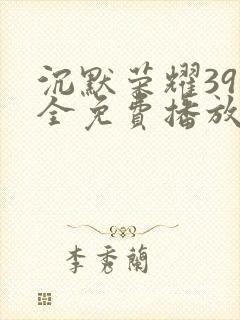 沉默荣耀39
全免費播放
李秀蘭